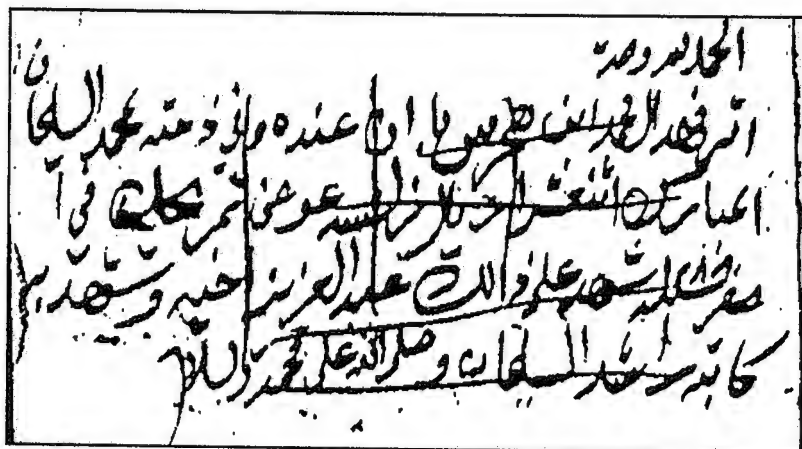 الحمد لله وحده
اقر فهد المحمد ابن بان عنده وفي ذمته لمحمد السليمان
المبارك اثنعشر ريال فرانسه عوض تمر في
صفر شهد على ذالك عبد العزيز اخيه وشهد به
كاتبه راشد السليمان وصلى الله على محمد وسلم